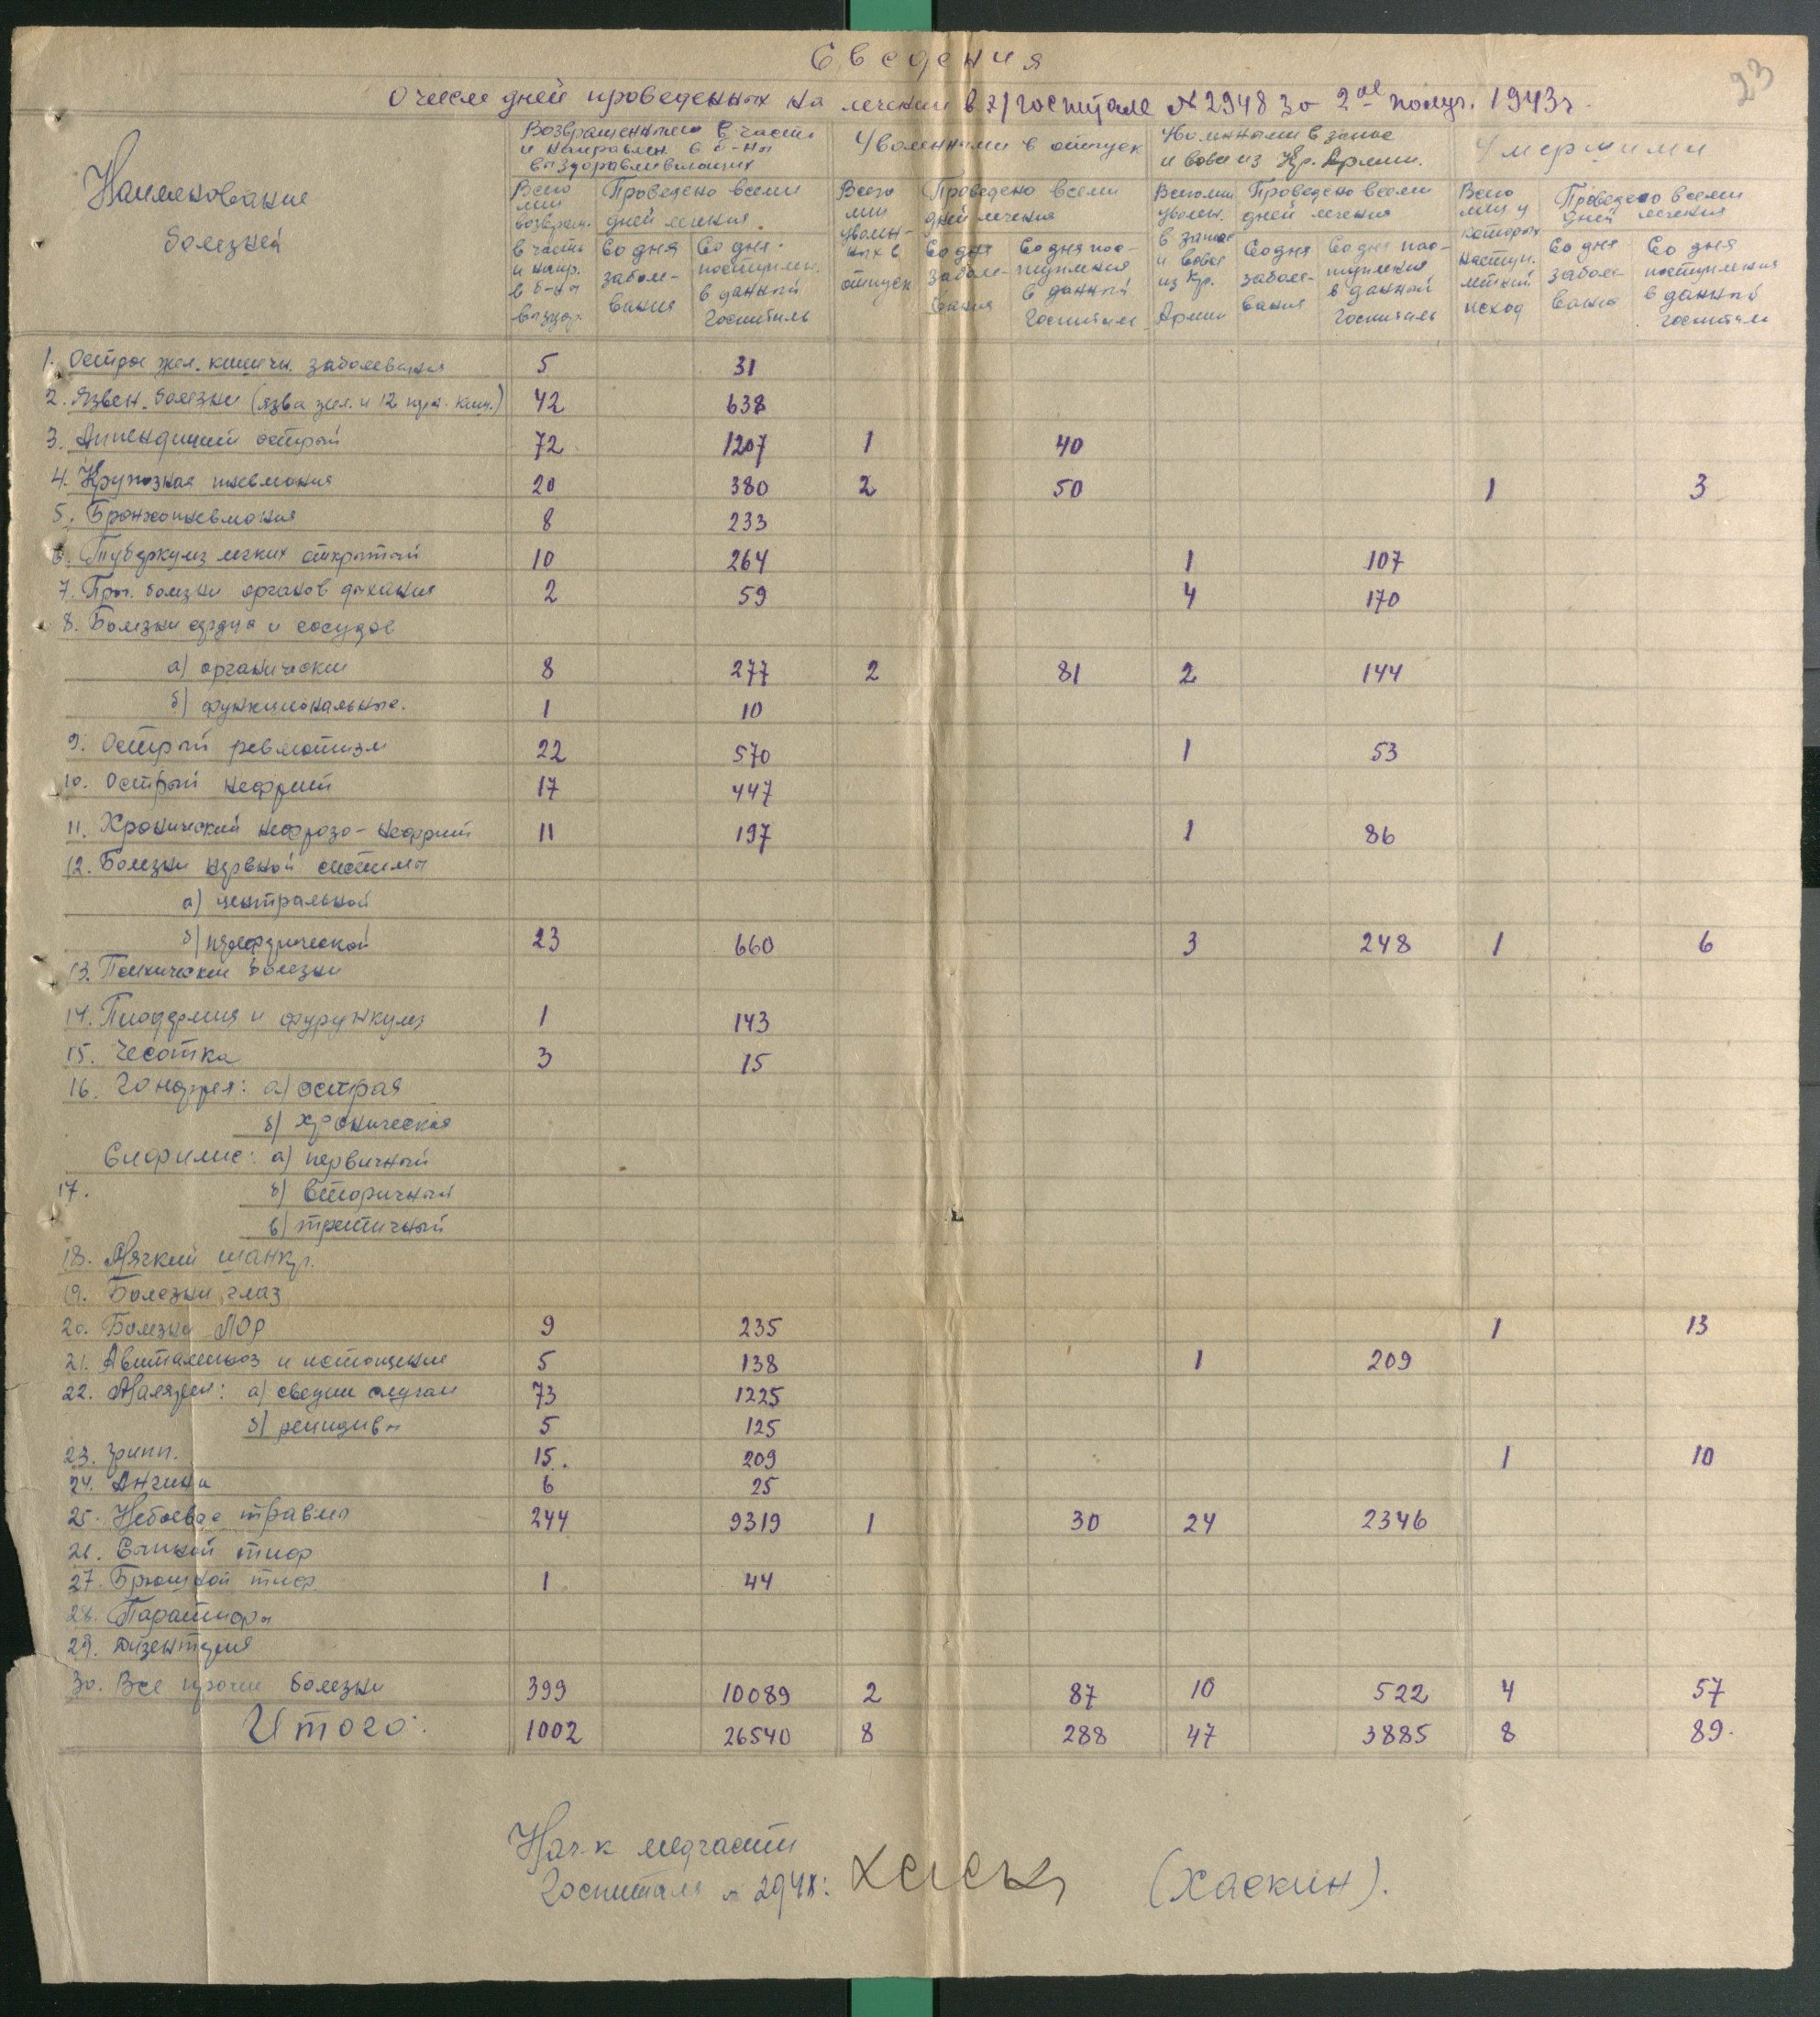 23
Сведения
О числе дней проведенных на лечении в э/госпитале № 2948 за 2ое полуг. 1943 г.
Наименование болезней
Возвращенными в части и направлен. в б-ны выздоравливающих
Уволенными в отпуск
Уволенными в запас и вовсе из Кр. Армии.
Умершими
Всего лиц возвращ. в часть и напр. в б-ны выздор
Проведено всеми дней лечения
Со дня заболевания
Со дня поступлен. в данный госпиталь
Всего лиц уволенных в отпуск
Проведено всеми дней лечения
Со дня заболевания
Со дня поступления в данный госпиталь
Всего лиц уволен. в запас и вовсе из Кр. Армии
Проведено всеми дней лечения
Со дня заболевания
Со дня поступления в данный госпиталь
Всего лиц у которых наступ. летний исход
Проведено всеми дней лечения
Со дня заболевания
Со дня поступления в данный госпиталь
1. Острые жел. кишечн. заболевания 5 31
2. Язвен. болезни (язва жел. и 12 перст. киш.) 42 638
3. Аппендицит острый 72 1207 1 40
4. Крупозная пневмония 20 380 2 50 1 3
5. Бронхопневмония 8 233
6. Туберкулез легких открытый 10 264 1 107
7. Проч. болезни органов дыхания 2 59 4 170
8. Болезни сердца и сосудов
а) органически 8 277 2 81 2 144
б) функциональные. 1 10
9. Острый ревматизм 22 570 1 53
10. Острый нефрит 17 447
11. Хронический нефрозо-нефрит 11 197 1 86
12. Болезни нервной системы
а) центральной
б) периферической 23 660 3 248 1 6
13. Психически болезни
14. Пиодермия и фурункулез 1 143
15. Чесотка 3 15
16. Гонорея: а) острая
б) хроническая
Сифилис: а) первичный
17. б) вторичный
в) третичный
18. Мягкий шанкр.
19. Болезни глаз
20. Болезни ЛОР 9 235 1 13
21. Авитаминоз и истощение 5 138 1 209
22. Малярия: а) свежии случаи 73 1225
б) рецидивы 5 125
23. Грипп. 15. 209 1 10
24. Ангина 6 25
25. Небоевые травмы 244 9319 1 30 24 2346
26. Сыпной тиф
27. Брюшной тиф 1 44
28. Паратифы
29. Дизентерия
30. Все прочие болезни 399 10089 2 87 10 522 4 57
Итого: 1002 26540 8 288 47 3885 8 89.
Нач-к медчасти
Госпиталя № 2948:
(Хаскин).